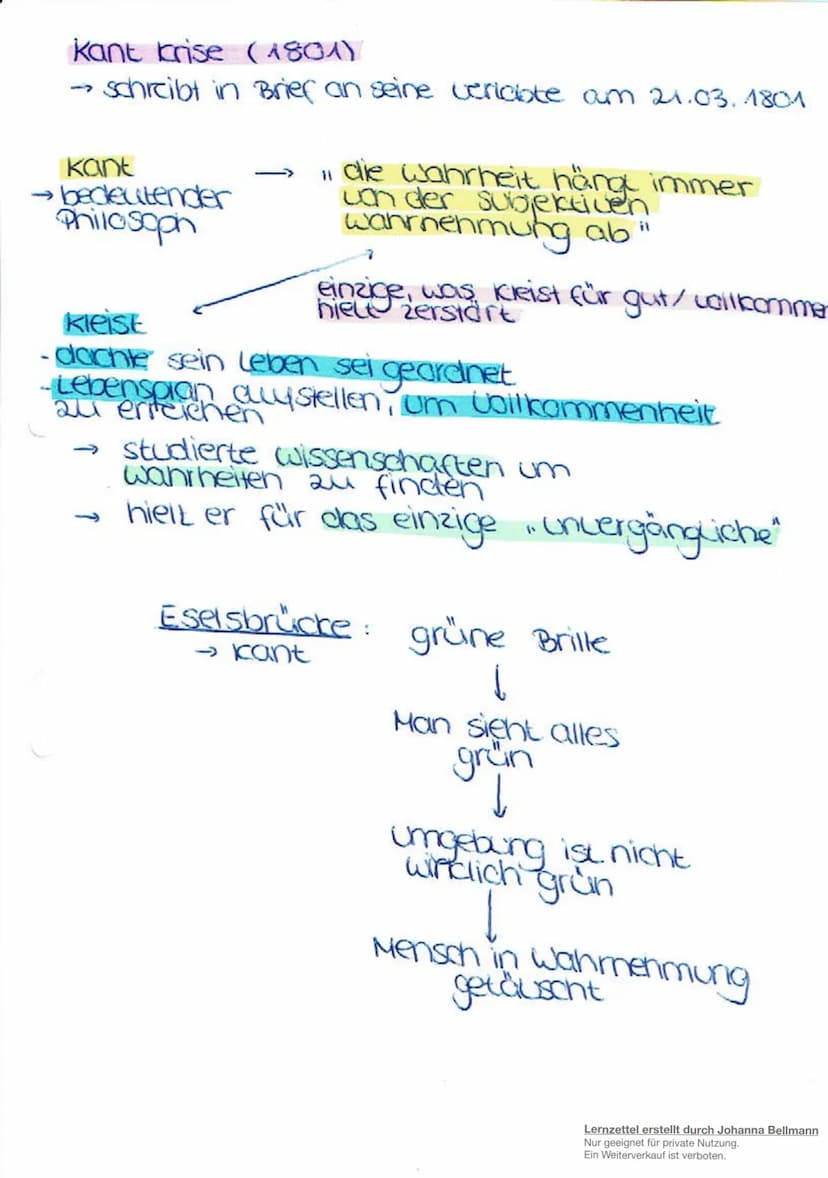 Kant Krise (1801)
→ schreibt in Brief an seine verlobte am 21.03.1801
Kant
→ bedeutender
Philosoph
→ „die Wahrheit hängt immer
von der subjektiven
Wahrnehmung ab"
einzige, was Kleist für gut/vollkommen
hielt zerstört
Kleist
- dachte sein Leben sei geordnet
- Lebensplan aufstellen, um Vollkommenheit
zu erreichen
→ studierte Wissenschaften um
Wahrheiten zu finden
→ hielt er für das einzige „unvergängliche"
Eselsbrücke: grüne Brille
→ Kant
↓
Man sieht alles
grün
↓
Umgebung ist nicht
wirklich grün
↓
Mensch in Wahrnehmung
getäuscht
Lernzettel erstellt durch Johanna Bellmann
Nur geeignet für private Nutzung.
Ein Weiterverkauf ist verboten.